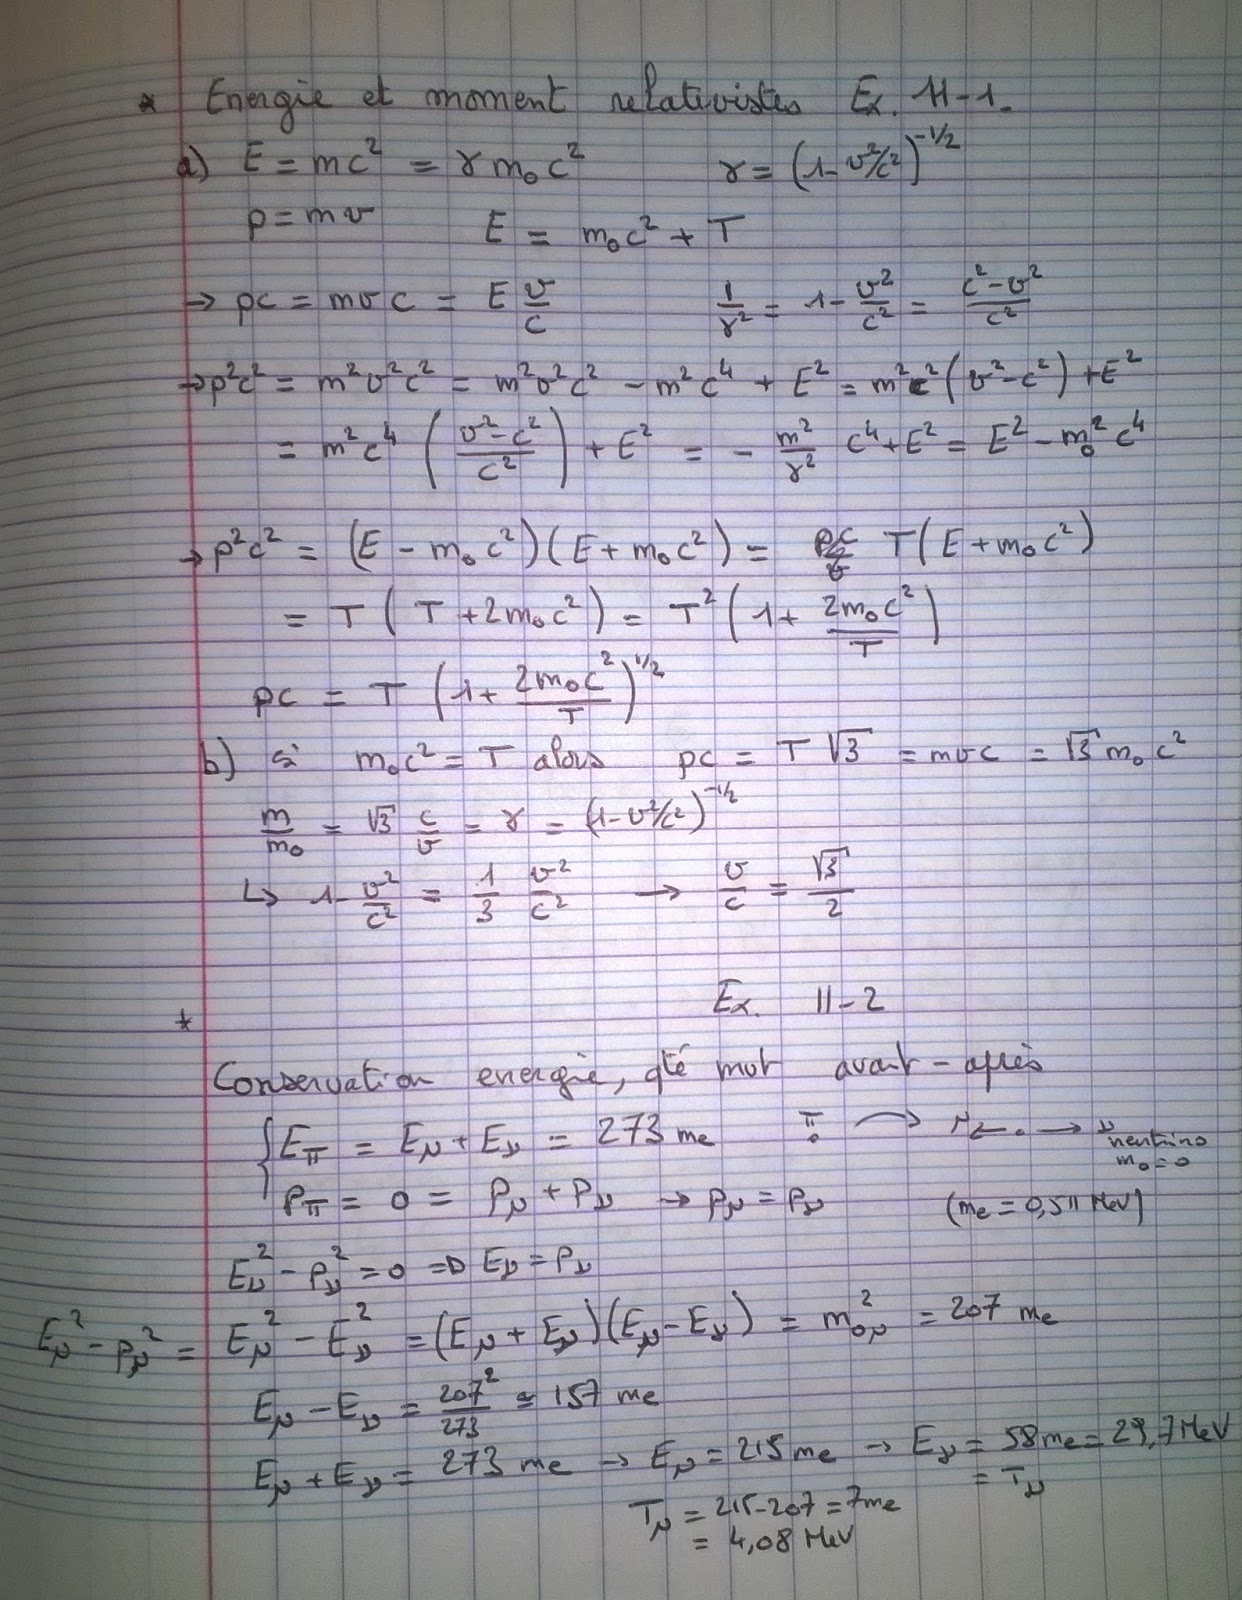 * Energie et moment relativistes Ex. 11-1.
a) E = mc² = γ m₀ c² γ = (1 - v²/c²)^(-1/2)
p = mv E = m₀c² + T
→ pc = mvc = E v/c 1/γ² = 1 - v²/c² = (c² - v²)/c²
→ p²c² = m²v²c² = m²v²c² - m²c⁴ + E² = m²c²(v² - c²) + E²
= m²c⁴ ((v² - c²)/c²) + E² = - m²/γ² c⁴ + E² = E² - m₀²c⁴
→ p²c² = (E - m₀c²)(E + m₀c²) = T(E + m₀c²)
= T(T + 2m₀c²) = T²(1 + 2m₀c²/T)
pc = T(1 + 2m₀c²/T)^(1/2)
b) si m₀c² = T alors pc = T√3 = mvc = √3 m₀c²
m/m₀ = √3 c/v = γ = (1 - v²/c²)^(-1/2)
↳ 1 - v²/c² = 1/3 v²/c² → v/c = √3/2
* Ex. 11-2
Conservation energie, qté mvt avant - après
{ E_π = E_μ + E_ν = 273 me π → μ ← . → ν
neutrino
m₀ = 0
p_π = 0 = p_μ + p_ν → p_μ = p_ν (me = 0,511 MeV)
E_ν² - p_ν² = 0 ⇒ E_ν = p_ν
E_μ² - p_μ² = E_μ² - E_ν² = (E_μ + E_ν)(E_μ - E_ν) = m₀μ² = 207 me
E_μ - E_ν = 207²/273 ≃ 157 me
E_μ + E_ν = 273 me → E_μ = 215 me → E_ν = 58 me = 29,7 MeV
= T_ν
T_μ = 215-207 = 7me
= 4,08 MeV